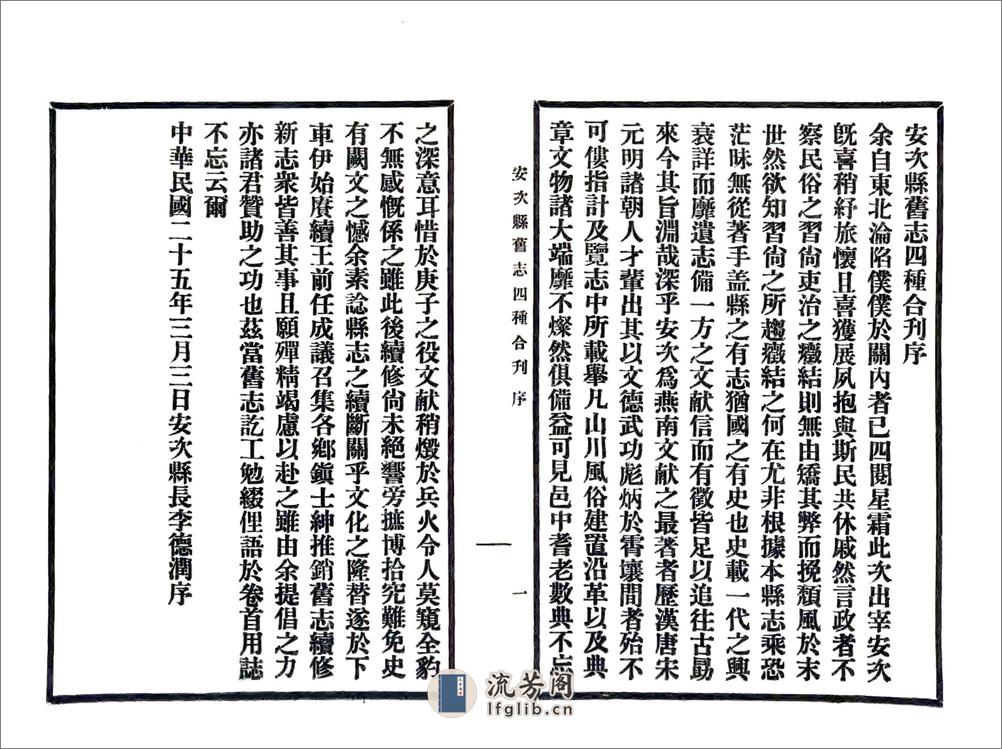 安次縣舊志四種合刊序
余自東北淪陷僕僕於關內者已四閱星霜此次出宰安次
旣喜稍紓旅懷且喜獲展夙抱與斯民共休戚然言政者不
察民俗之習尙吏治之癥結則無由矯其弊而挽頹風於末
世然欲知習尙之所趨癥結之何在尤非根據本縣志乘恐
茫昧無從著手盖縣之有志猶國之有史也史載一代之興
衰詳而靡遺志備一方之文献信而有徵皆足以追往古勗
來今其旨淵哉深乎安次爲燕南文献之最著者歷漢唐宋
元明諸朝人才輩出其以文德武功彪炳於霄壤間者殆不
可僂指計及覽志中所載舉凡山川風俗建置沿革以及典
章文物諸大端靡不燦然俱備益可見邑中耆老數典不忘
安次縣舊志四種合刊 序
一
之深意耳惜於庚子之役文献稍燬於兵火令人莫窺全豹
不無感慨係之雖此後續修尙未絕響旁摭博拾究難免史
有闕文之憾余素諗縣志之續斷關乎文化之隆替遂於下
車伊始賡續王前任成議召集各鄉鎭士紳推銷舊志續修
新志衆皆善其事且願殫精竭慮以赴之雖由余提倡之力
亦諸君贊助之功也茲當舊志訖工勉綴俚語於卷首用誌
不忘云爾
中華民國二十五年三月三日安次縣長李德潤序
流芳阁
lfglib.cn